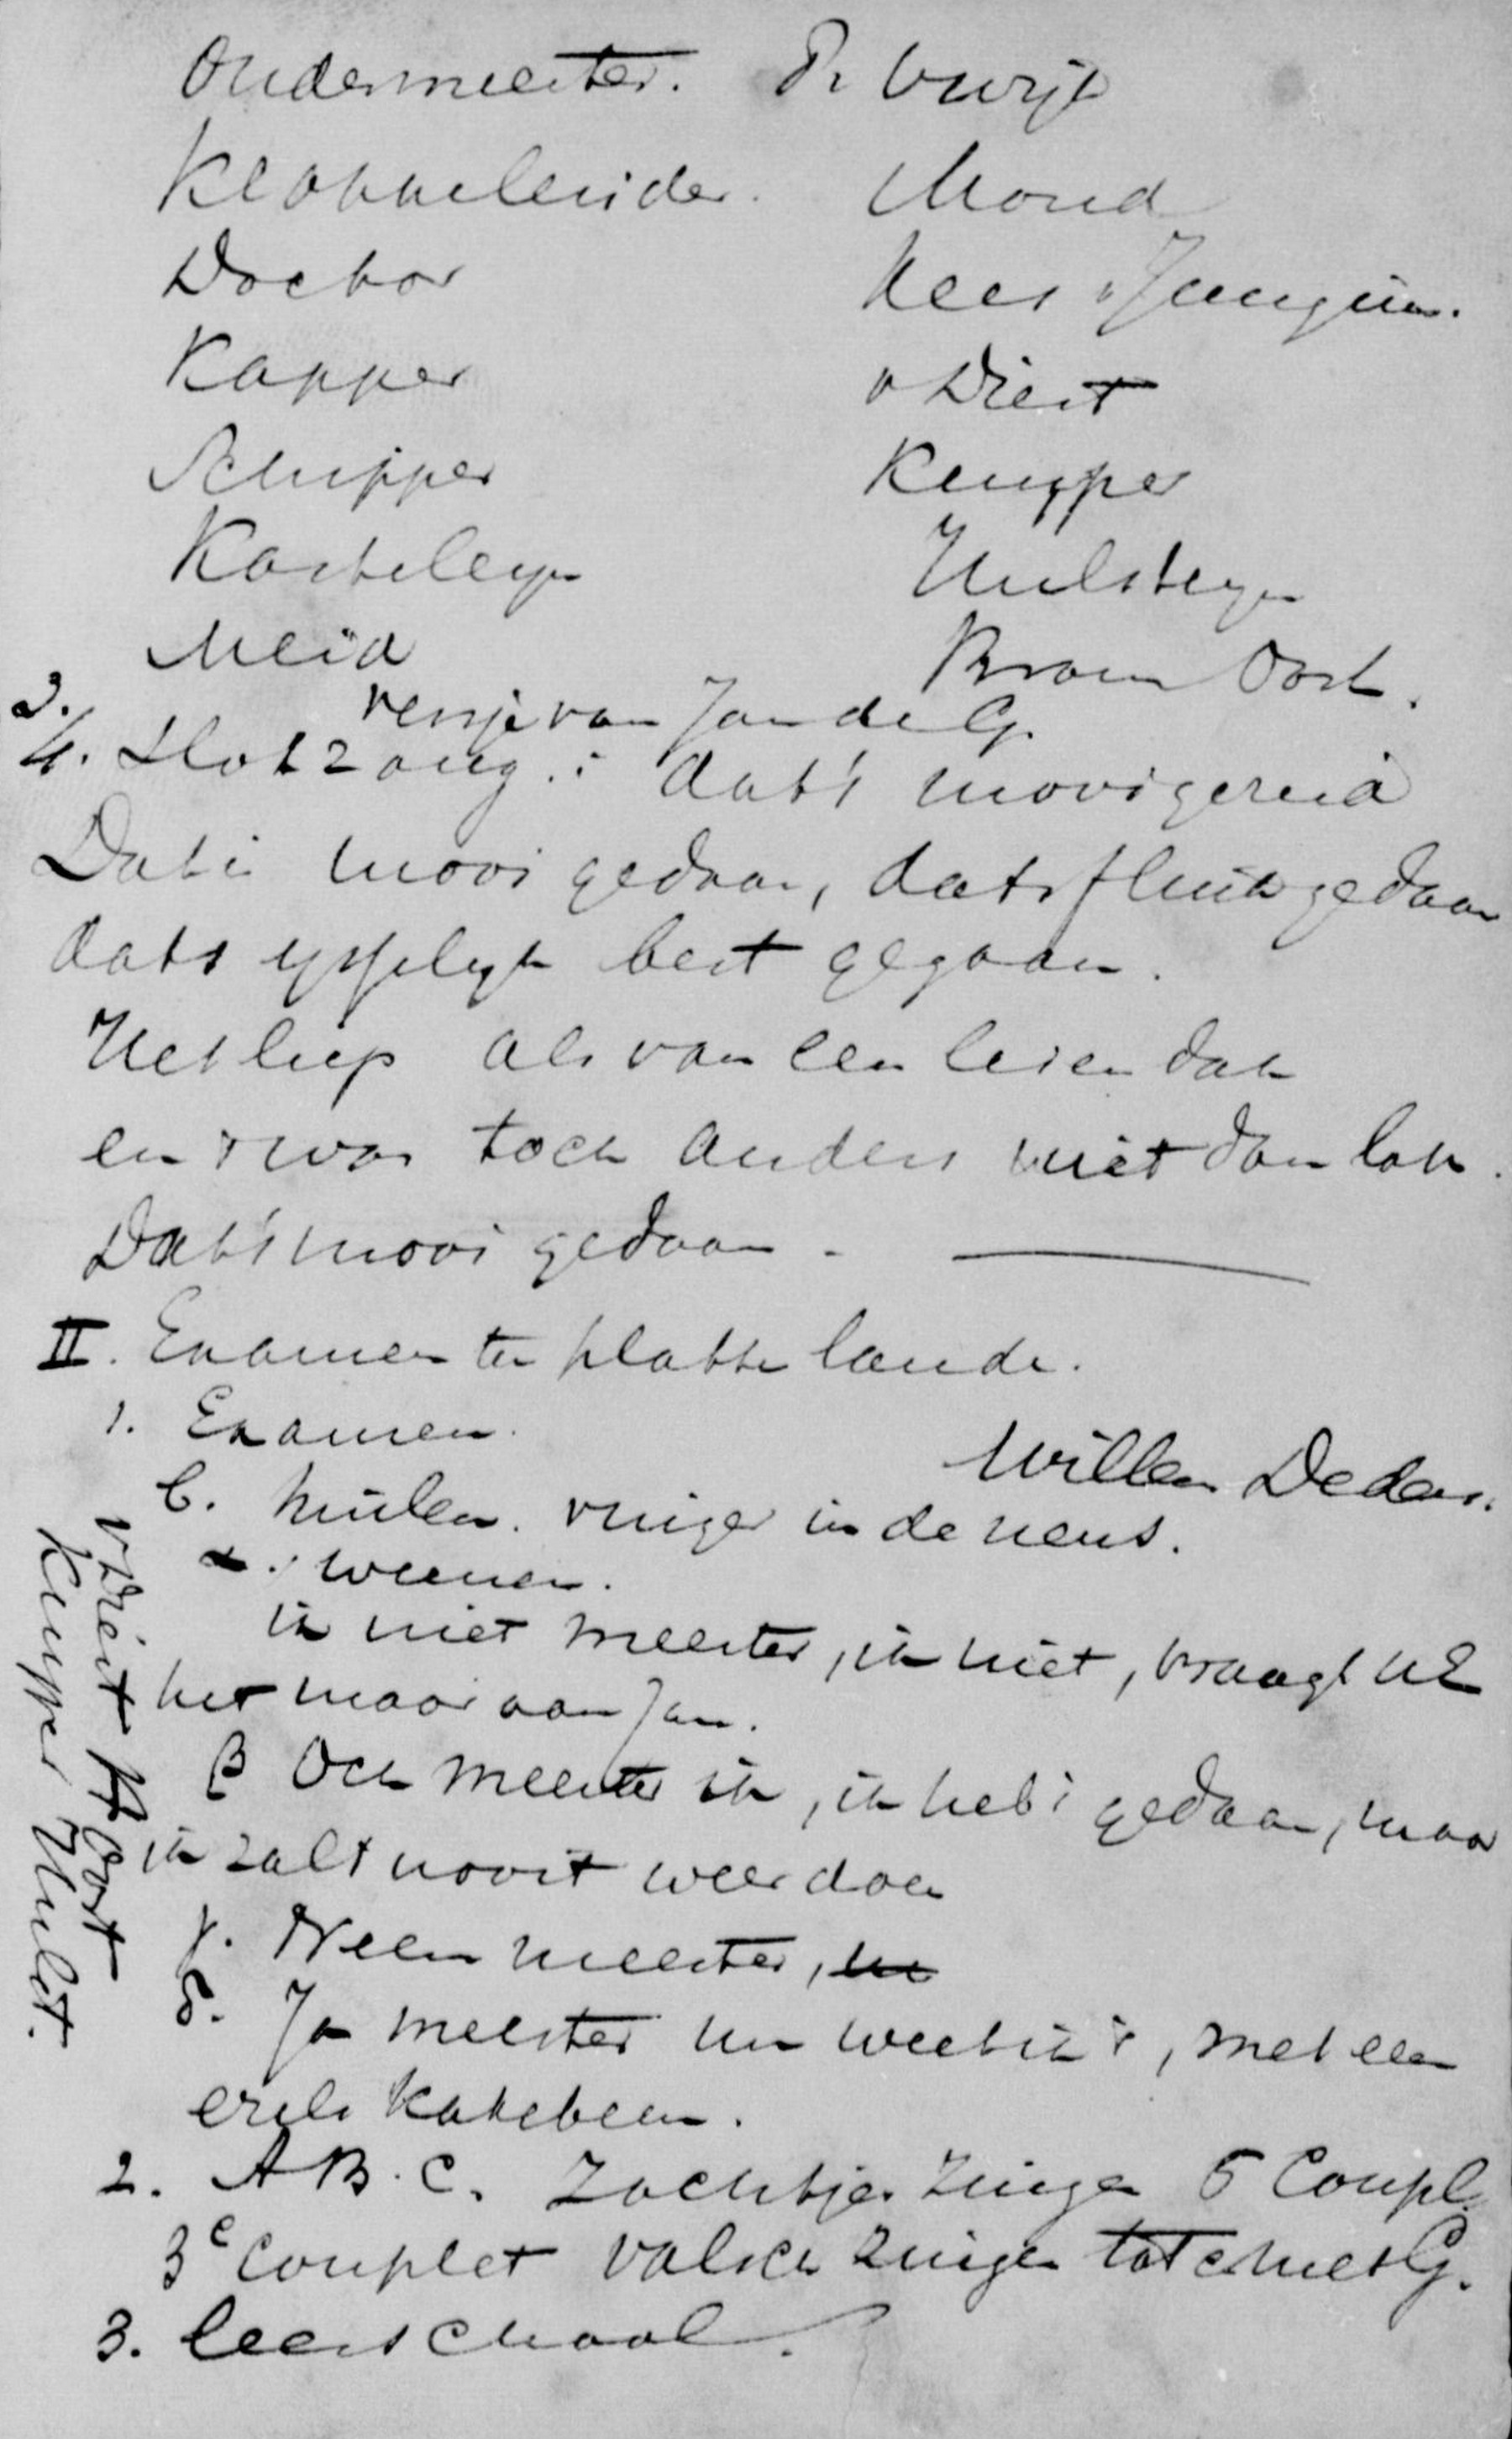 Ondermeester. P. Vwijk
Klokkeluider. Mond
Doctor Kees v Jungius.
Kapper v Driest
Schipper Kemper
Kasteleyn Hulsteyn
Meid Bram Oort.
3. versje van Jan de G.
4. Slotzang: dat's mooi gereid
Dat's mooi gedaan, dats fluks gedaan
dats ysselyk best gegaan.
Het liep als van een leien dak
en t was toch anders niet dan lak.
Dat's mooi gedaan.
II. Examen ten platte lande.
1. Examen.
Willem Dedem.
b. huilen. vinger in de neus.
α. weenen.
ik niet meester, ik niet, vraagt UE
het maar aan Jan.
β Och meester ik, ik heb 't gedaan, maar
ik zal 't nooit weer doen
γ. Neen meester,
δ. Ja meester nu weet ik 't, met een
ezels kakebeen.
2. A B. C. Zachtjes zingen 5 Coupl.
3e Couplet valsch zingen tot e met G.
3. leerschool.
v Driest A Oort
Kemper Hulst.